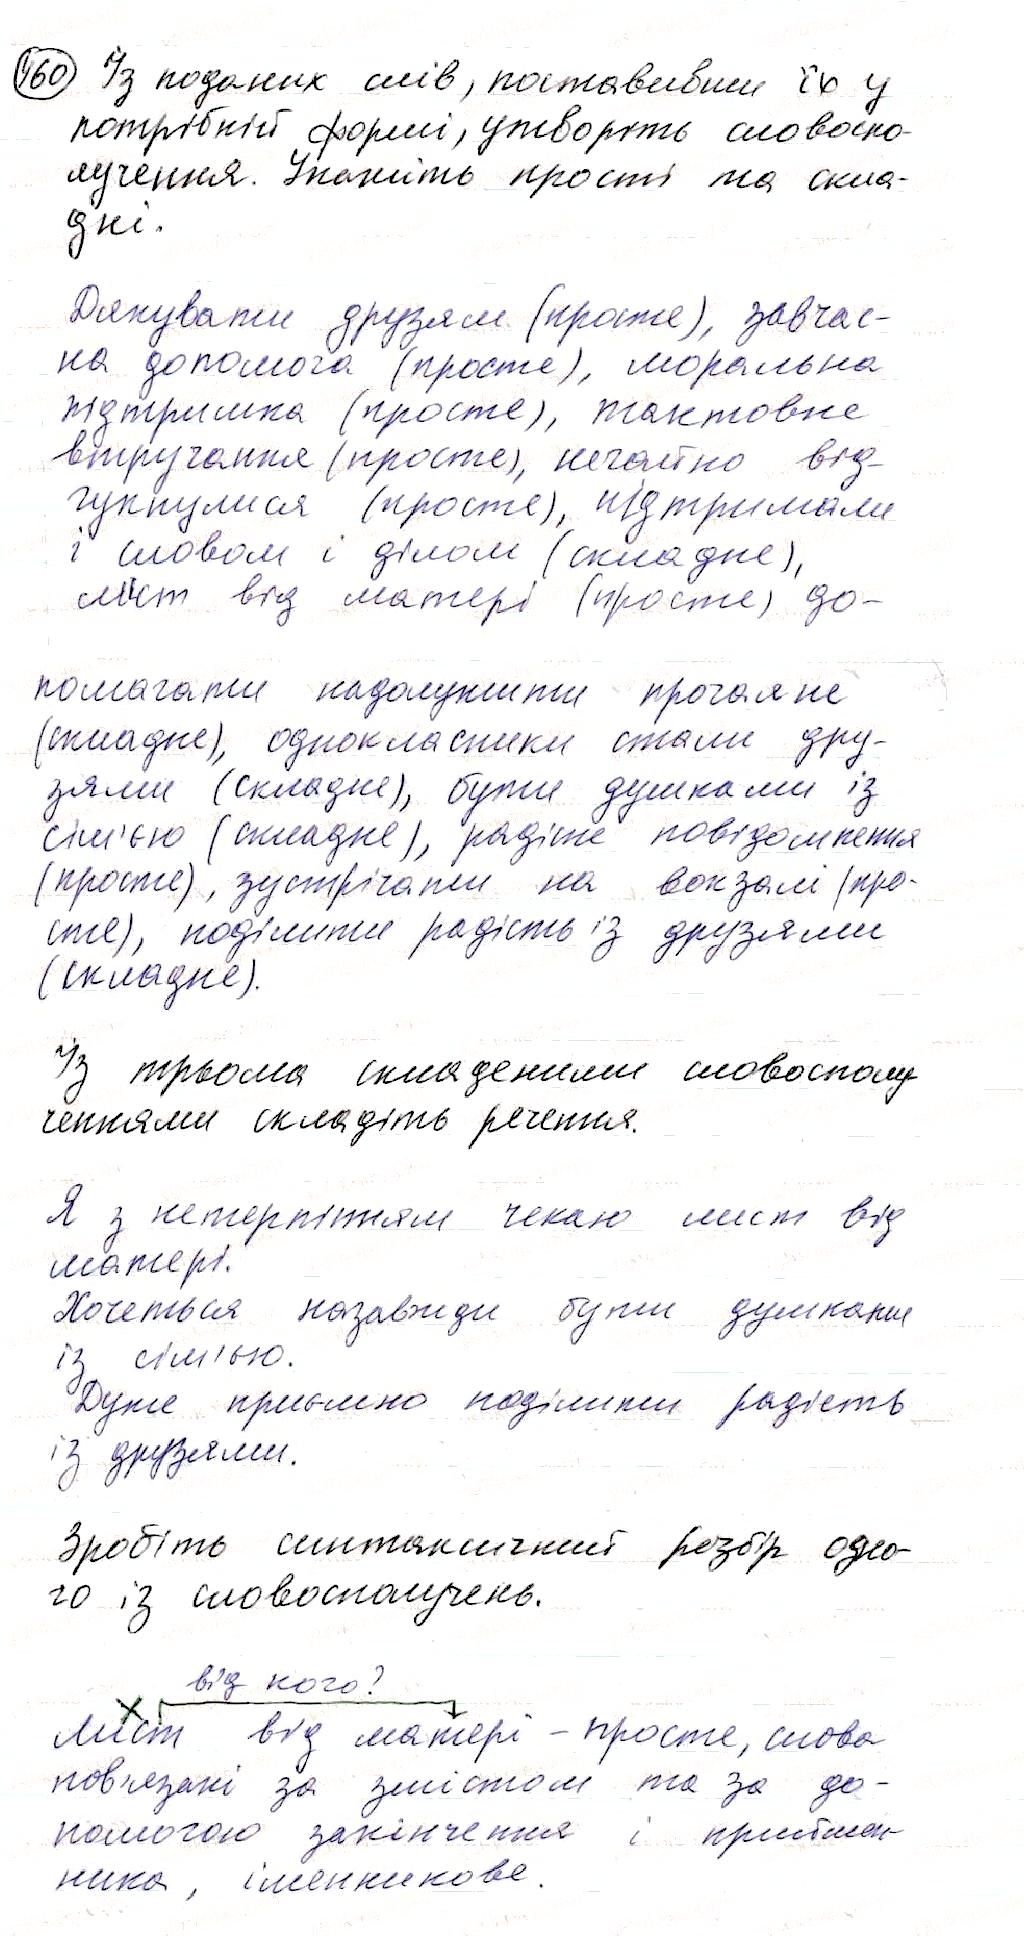 460 Із поданих слів, поставивши їх у
потрібній формі, утворіть словоспо-
лучення. Укажіть прості та скла-
дні.
Дякувати друзям (просте), завчас-
на допомога (просте), моральна
підтримка (просте), тактовне
втручання (просте), негайно від-
гукнулися (просте), підтримали
і словом і ділом (складне),
лист від матері (просте) до-
помагати надолужити прогаяне
(складне), однокласники стали дру-
зями (складне), бути думками із
сім'єю (складне), радісне повідомлення
(просте), зустрічати на вокзалі (про-
сте), поділити радість із друзями
(складне).
Із трьома складеними словосполу
ченнями складіть речення.
Я з нетерпінням чекаю лист від
матері.
Хочеться назавжди бути думками
із сім'єю.
Дуже приємно поділити радість
із друзями.
Зробіть синтаксичний розбір одно-
го із словосполучень.
від кого?
Лист від матері - просте, слова
пов'язані за змістом та за до-
помогою закінчення і приймен-
ника, іменникове.